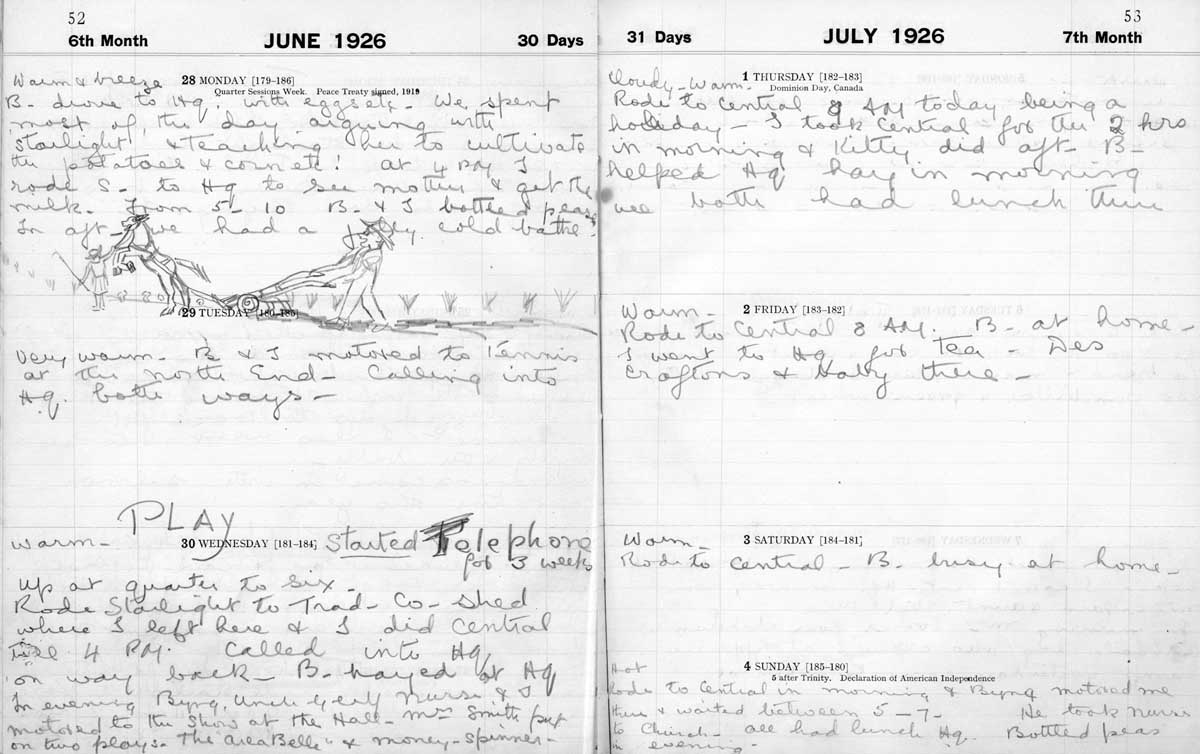 52
6th Month JUNE 1926 30 Days
Warm & breeze
28 MONDAY [179-186]
Quarter Sessions Week. Peace Treaty signed, 1919
B- drove to Hq. with eggs etc- We spent
most of the day arguing with
Starlight & teaching her to cultivate
the potatoes & corn etc! at 4 PM I
rode S- to Hq to see mother & get the
milk- From 5-10 B- & I bottled peas
In aft- we had a jolly cold bathe-
29 TUESDAY [180-185]
Very warm- B & I motored to Tennis
at the North End- Calling into
Hq. both ways-
PLAY
Warm-
30 WEDNESDAY [181-184] Started Telephone
for 3 weeks
Up at quarter to six-
Rode Starlight to Trad- Co- shed
where I left here & I did Central
till 4 PM. Called into Hq
on way back- B- hayed at Hq
In evening Byng, Uncle Gerly Nurse & I
motored to the Show at the Hall- Mrs Smith put
on two plays- The Area Belle" & money-spinner-
53
31 Days JULY 1926 7th Month
Cloudy- Warm-
1 THURSDAY [182-183]
Dominion Day, Canada
Rode to Central 8 AM today being a
holiday- I took Central for the 2 hrs
in morning & Kitty did aft- B-
helped Hq hay in morning
we both had lunch there
2 FRIDAY [183-182]
Warm-
Rode to Central 8 AM. B- at home-
I went to Hq for Tea- Des
Craftons & Hally there-
3 SATURDAY [184-181]
Warm-
Rode to Central- B- busy at home-
4 SUNDAY [185-180]
5 after Trinity. Declaration of American Independence
Hot
Rode to Central in morning & Byng motored me
there & waited between 5-7- He took nurse
to Church- all had lunch Hq. Bottled peas
in evening-